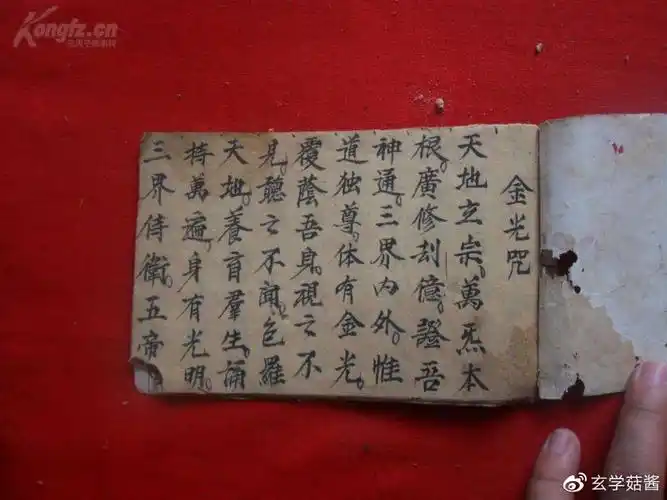 Kongfz.cn
金光咒
天地立宗。萬炁本
根。廣修刦億。證吾
神通。三界內外。惟
道独尊。体有金光。
覆蔭吾身。視之不
見。聽之不聞。包羅
天地。養育羣生。誦
持萬遍。身有光明。
三界侍衛。五帝
玄学菇酱